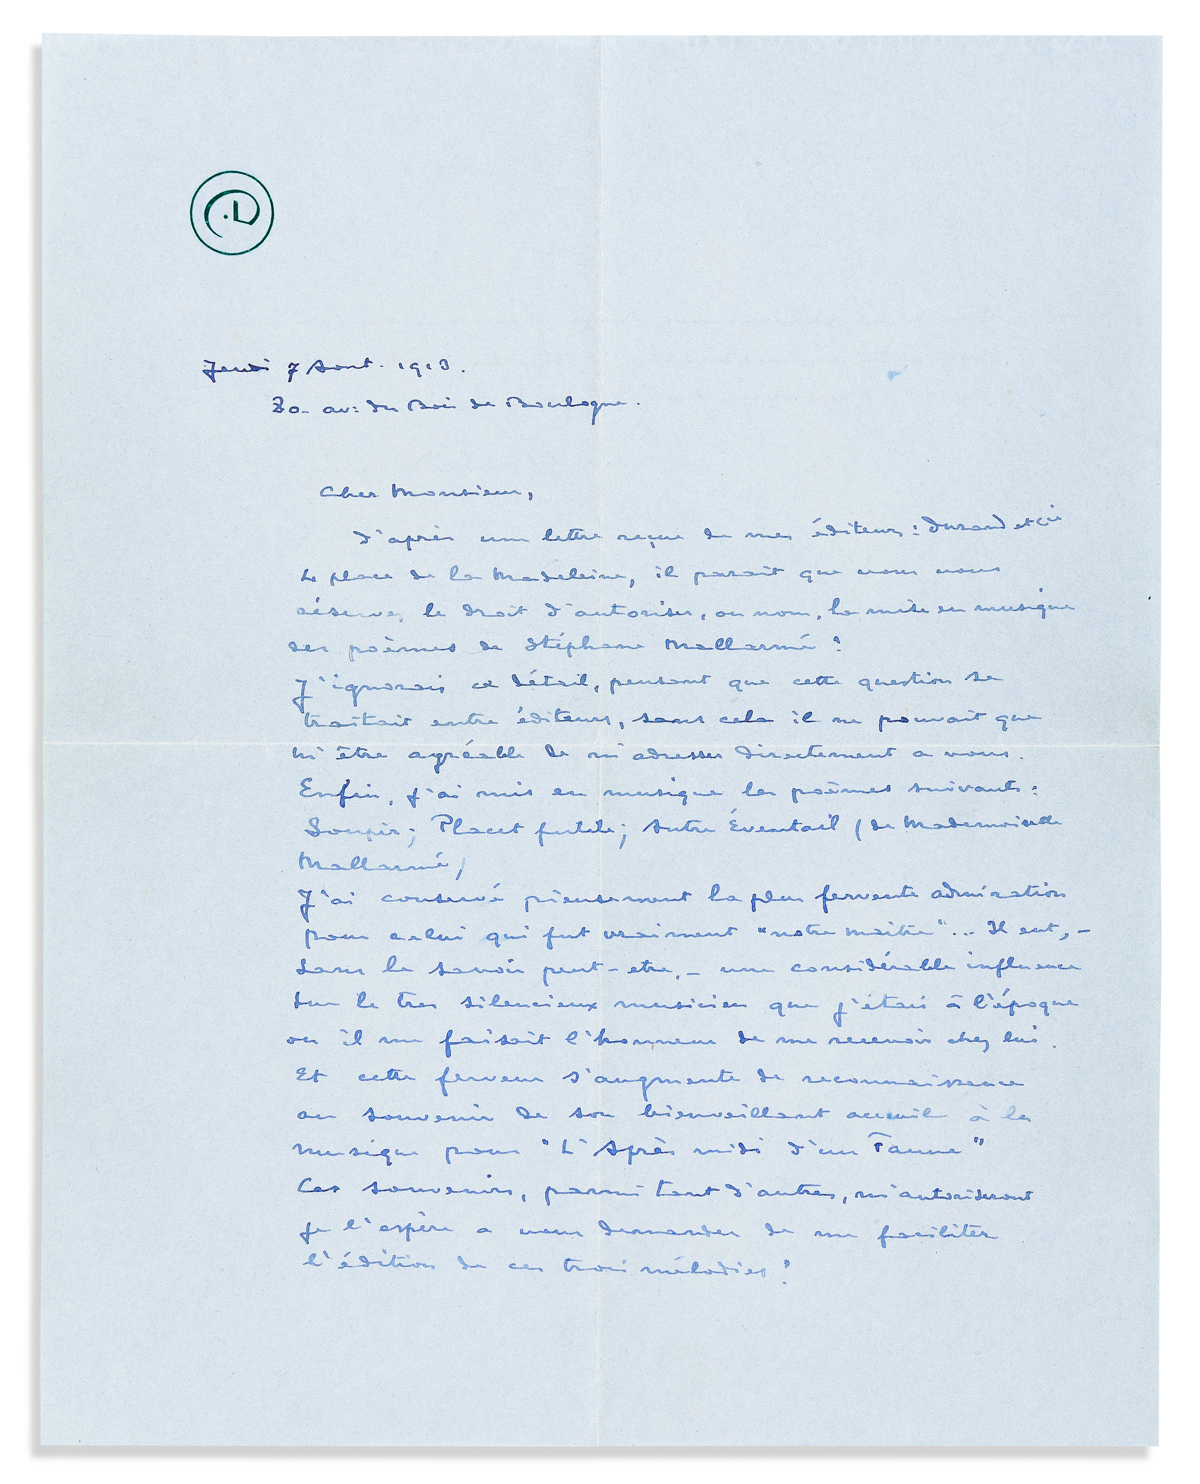 Jeudi 7 Août. 1913.
80- av: du Bois de Boulogne.
Cher Monsieur,
D'après une lettre reçue de mes éditeurs: Durand et Cie
4 place de la Madeleine, il parait que vous vous
réservez le droit d'autoriser, ou non, la mise en musique
des poèmes de Stéphane Mallarmé?
J'ignorais ce détail, pensant que cette question se
traitait entre éditeurs, sans cela il ne pouvait que
m'être agréable de m'adresser directement a vous.
Enfin, j'ai mis en musique les poèmes suivants:
Soupir; Placet futile; Autre Éventail (de Mademoiselle
Mallarmé)
J'ai conservé pieusement la plus fervente admiration
pour celui qui fut vraiment "notre maitre"... Il eut, -
sans le savoir peut-etre, - une considérable influence
sur le tres silencieux musicien que j'étais à l'époque
ou il me faisait l'honneur de me recevoir chez lui.
Et cette ferveur s'augmente de reconnaissance
au souvenir de son bienveillant accueil à la
musique pour "L'Après midi d'un Faune"
Ces souvenirs, parmi tant d'autres, m'autoriseront
je l'espère a vous demander de me faciliter
l'édition de ces trois mélodies?